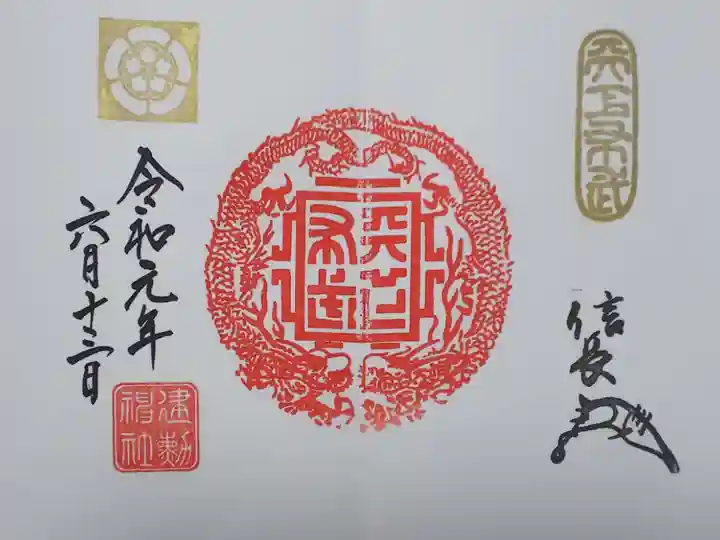 天下布武
信長
天下布武
令和元年
六月十三日
建勲神社